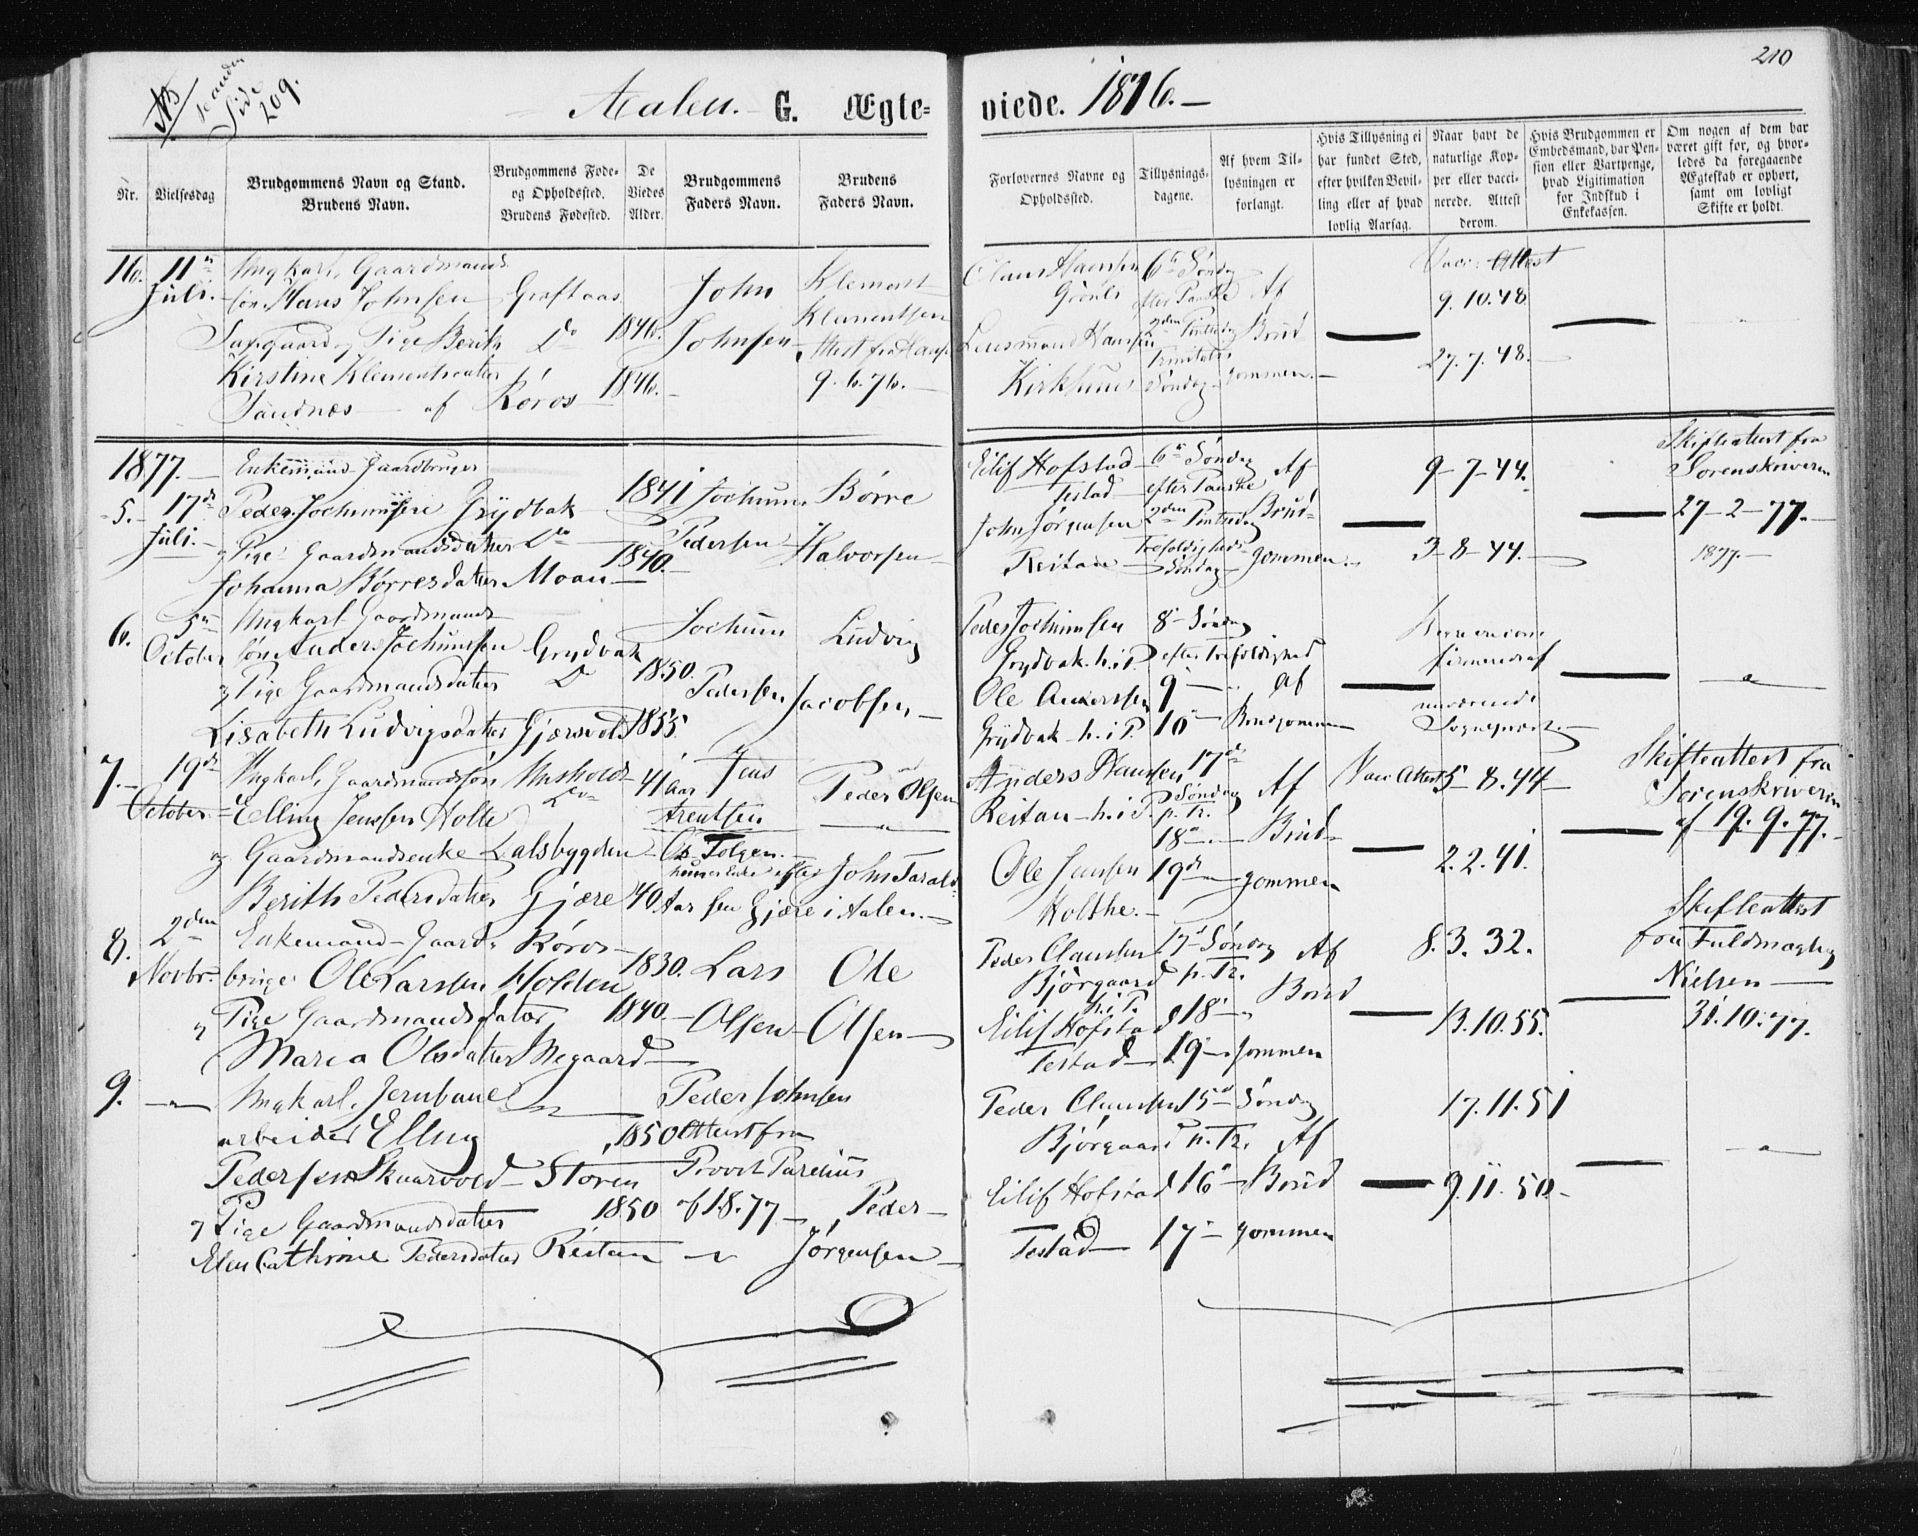 210
NB
Side
209.
Aalen. G. Ægte=
viede. 1876.
Nr.
Vielsesdag
Brudgommens Navn og Stand.
Brudens Navn.
Brudgommens Føde-
og Opholdssted.
Brudens Fødested.
De
Viedes
Alder.
Brudgommens
Faders Navn.
Brudens
Faders Navn.
Forlovernes Navne og
Opholdssted.
Tillysnings-
dagene.
Af hvem Til-
lysningen er
forlangt.
Hvis Tillysning ei
har fundet Sted,
efter hvilken Bevil-
ling eller af hvad
lovlig Aarsag.
Naar havt de
naturlige Kop-
per eller vacci-
nerede. Attest
derom.
Hvis Brudgommen er
Embedsmand, har Pen-
sion eller Vartpenge,
hvad Ligitimation
for Indskud i
Enkekassen.
Om nogen af dem har
været gift før, og hvor-
ledes da foregaaende
Ægteskab er ophørt,
samt om lovligt
Skifte er holdt.
16. 11 Ungkarl, Gaardmands
Juli. søn Hans Johnsen Graftaas 1846. John Johnsen Klement Klementsen
og Pige Berith Do
Kirstine Klementsdatter 1846. 9.6.76.
Sandnæs af Røros
Claus Hansen 6te Søndag Vacc. Attest
efter Paaske Af 9.10.48
Lensmand Hansen 2den Pintsedag Brud
Trinitatis 27.7.48.
Kirkhuus Søndag gommen.
1877. Enkemand Gaardbruger
5. 17de Peder Jochumsen Grydbak 1841 Jochum Børre
Juli. og Pige Gaardmandsdatter Do Pedersen Halvorsen
Johanna Børresdatter Moan 1840.
Eilif Hofstad 6te Søndag Af 9-7-44. Skifteattest fra
efter Paaske Sorenskriveren
John Jørgensen 2den Pintsedag Brud- 27-2-77.
Reitan Trefoldigheds gommen. 3-8-44. 1877.
Søndag
6. 5te Ungkarl Gaardmands
October søn Anders Jochumsen Grydbak 1850. Jochum Ludvig
og Pige Gaardmandsdatter Do Pedersen Jacobsen
Lisabeth Ludvigsdatter Gjærsvold 1855.
Peder Jochumsen 8de Søndag
Grydbak h.i P. efter Trefoldighed
Ole Anderssen 9 " Af
Grydbak h.i P. 10 Brudgommen
nuværende
Sogneprest.
7. 19de Ungkarl, Gaardmandssøn 41 Aar Jens Peder Olsen
October Elling Jenssen Holte Arentsen
og Gaardmandsenke Dalsbygden Os Tolgen.
Berith Pedersdatter Gjære 40 Aar efter John Tarald-
sen Gjære i Aalen.
Anders Hansen 17de Vacc. Attest 5-8.44 Skifteattest fra
Reitan h.i P. Søndag Af Sorenskriveren
p. Tr. af 19.9.77.
18 Brud
Ole Jensen 19de gommen 2.2.41.
Holthe.
8. 2den Enkemand Gaard- Røros
Novbr. bruger Ole Larssen Holden 1830. Lars Ole
og Pige Gaardmandsdatter 1840. Olsen Olsen
Maria Olsdatter
Peder Claussen 17de Søndag Af 8.3.32. Skifteattest
Bjørgaard p. Tr. fra Fuldmægtig
h.i P. 18 " Brud Nielsen
Eilif Hofstad 13.10.55. 31.10.77.
19 gommen
9. Ungkarl, Jernbane Peder Johnsen
arbeider Elling 1850 Attest fra
Pedersen Skaarvold Støren Provst Parelius
og Pige Gaardmandsdatter 1850 af 1.8.77 Peder
Elen Cathrine Pedersdatter Reitan Jørgensen
Peder Claussen 15de Søndag 17.11.51
Bjørgaard p. Tr. Af
Eilif Hofstad 16 Brud 9.11.50.
17 gommen